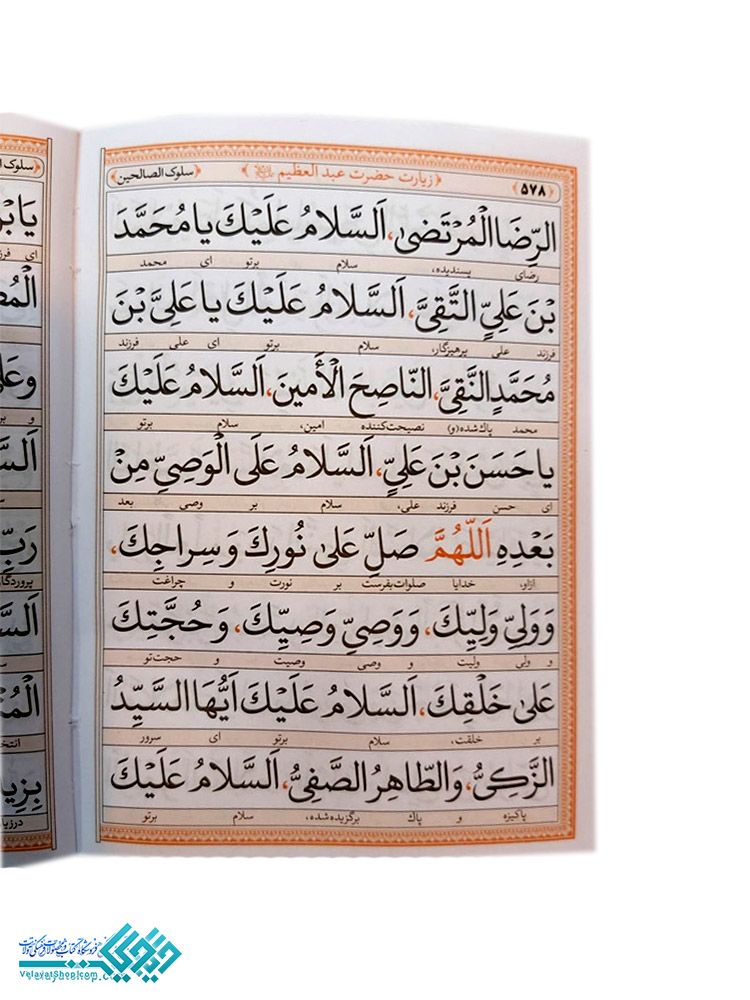 ﴿سلوک الصالحین﴾ ﴿زیارت حضرت عبد العظیم﴾ ﴿۵۷۸﴾
الرِّضَا الْمُرْتَضىٰ، اَلسَّلامُ عَلَیْكَ یا مُحَمَّدَ
رضای پسندیده، سلام برتو ای محمد
بْنَ عَلِیٍّ التَّقِیَّ، اَلسَّلامُ عَلَیْكَ یا عَلِیَّ بْنَ
فرزند علی پرهیزگار، سلام برتو ای علی فرزند
مُحَمَّدٍ النَّقِیَّ، النّاصِحَ الْأَمینَ، اَلسَّلامُ عَلَیْكَ
محمد پاك‌شده(و) نصیحت‌کننده امین، سلام برتو
یا حَسَنَ بْنَ عَلِیٍّ، اَلسَّلامُ عَلَی الْوَصِیِّ مِنْ
ای حسن فرزند علی، سلام بر وصی بعد
بَعْدِهِ اَللّٰهُمَّ صَلِّ عَلىٰ نُورِكَ وَ سِراجِكَ،
ازاو، خدایا صلوات‌بفرست بر نورت و چراغت
وَ وَلِیِّ وَلِیِّكَ، وَ وَصِیِّ وَصِیِّكَ، وَ حُجَّتِكَ
و ولی ولیت و وصی وصیت و حجت‌تو
عَلىٰ خَلْقِكَ، اَلسَّلامُ عَلَیْكَ اَیُّهَا السَّیِّدُ
بر خلقت، سلام برتو ای سرور
الزَّکِیُّ، وَالطّاهِرُ الصَّفِیُّ، اَلسَّلامُ عَلَیْكَ
پاکیزه و پاك برگزیده‌شده، سلام برتو
VelayatShop.com